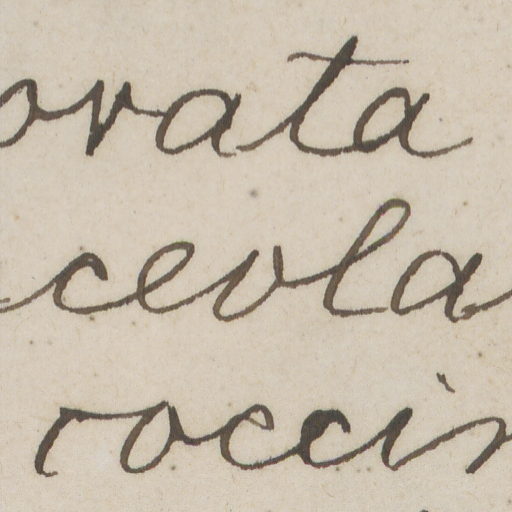 orata
ceola
roccin